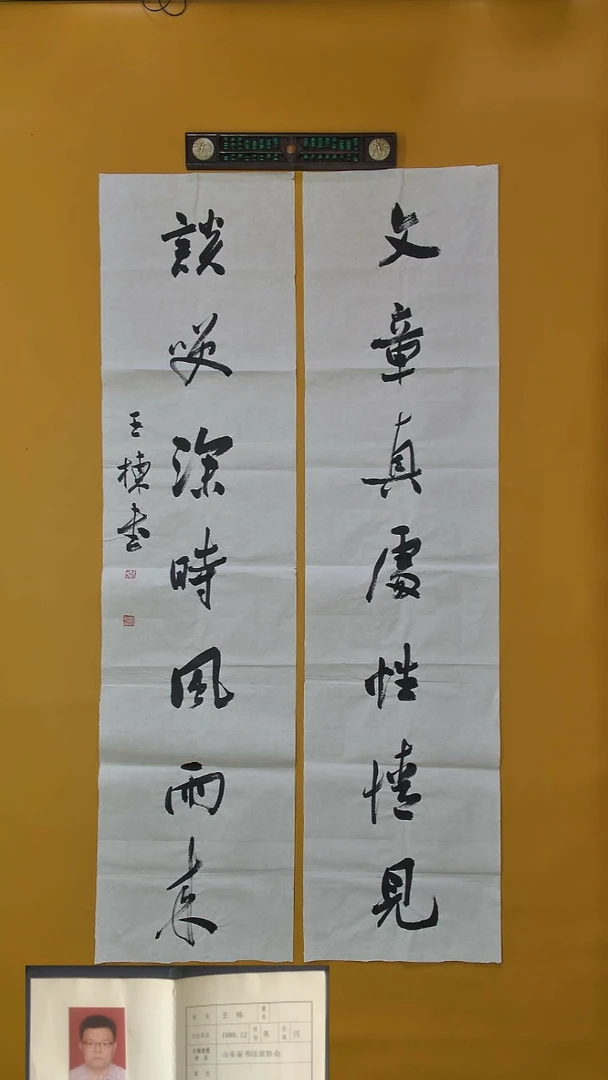 文章真處性情見
談笑深時風雨來
王棟書
姓名 王栋
1988.12 性别 男 汉
山东省书法家协会